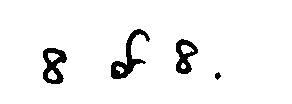 8 of 8.